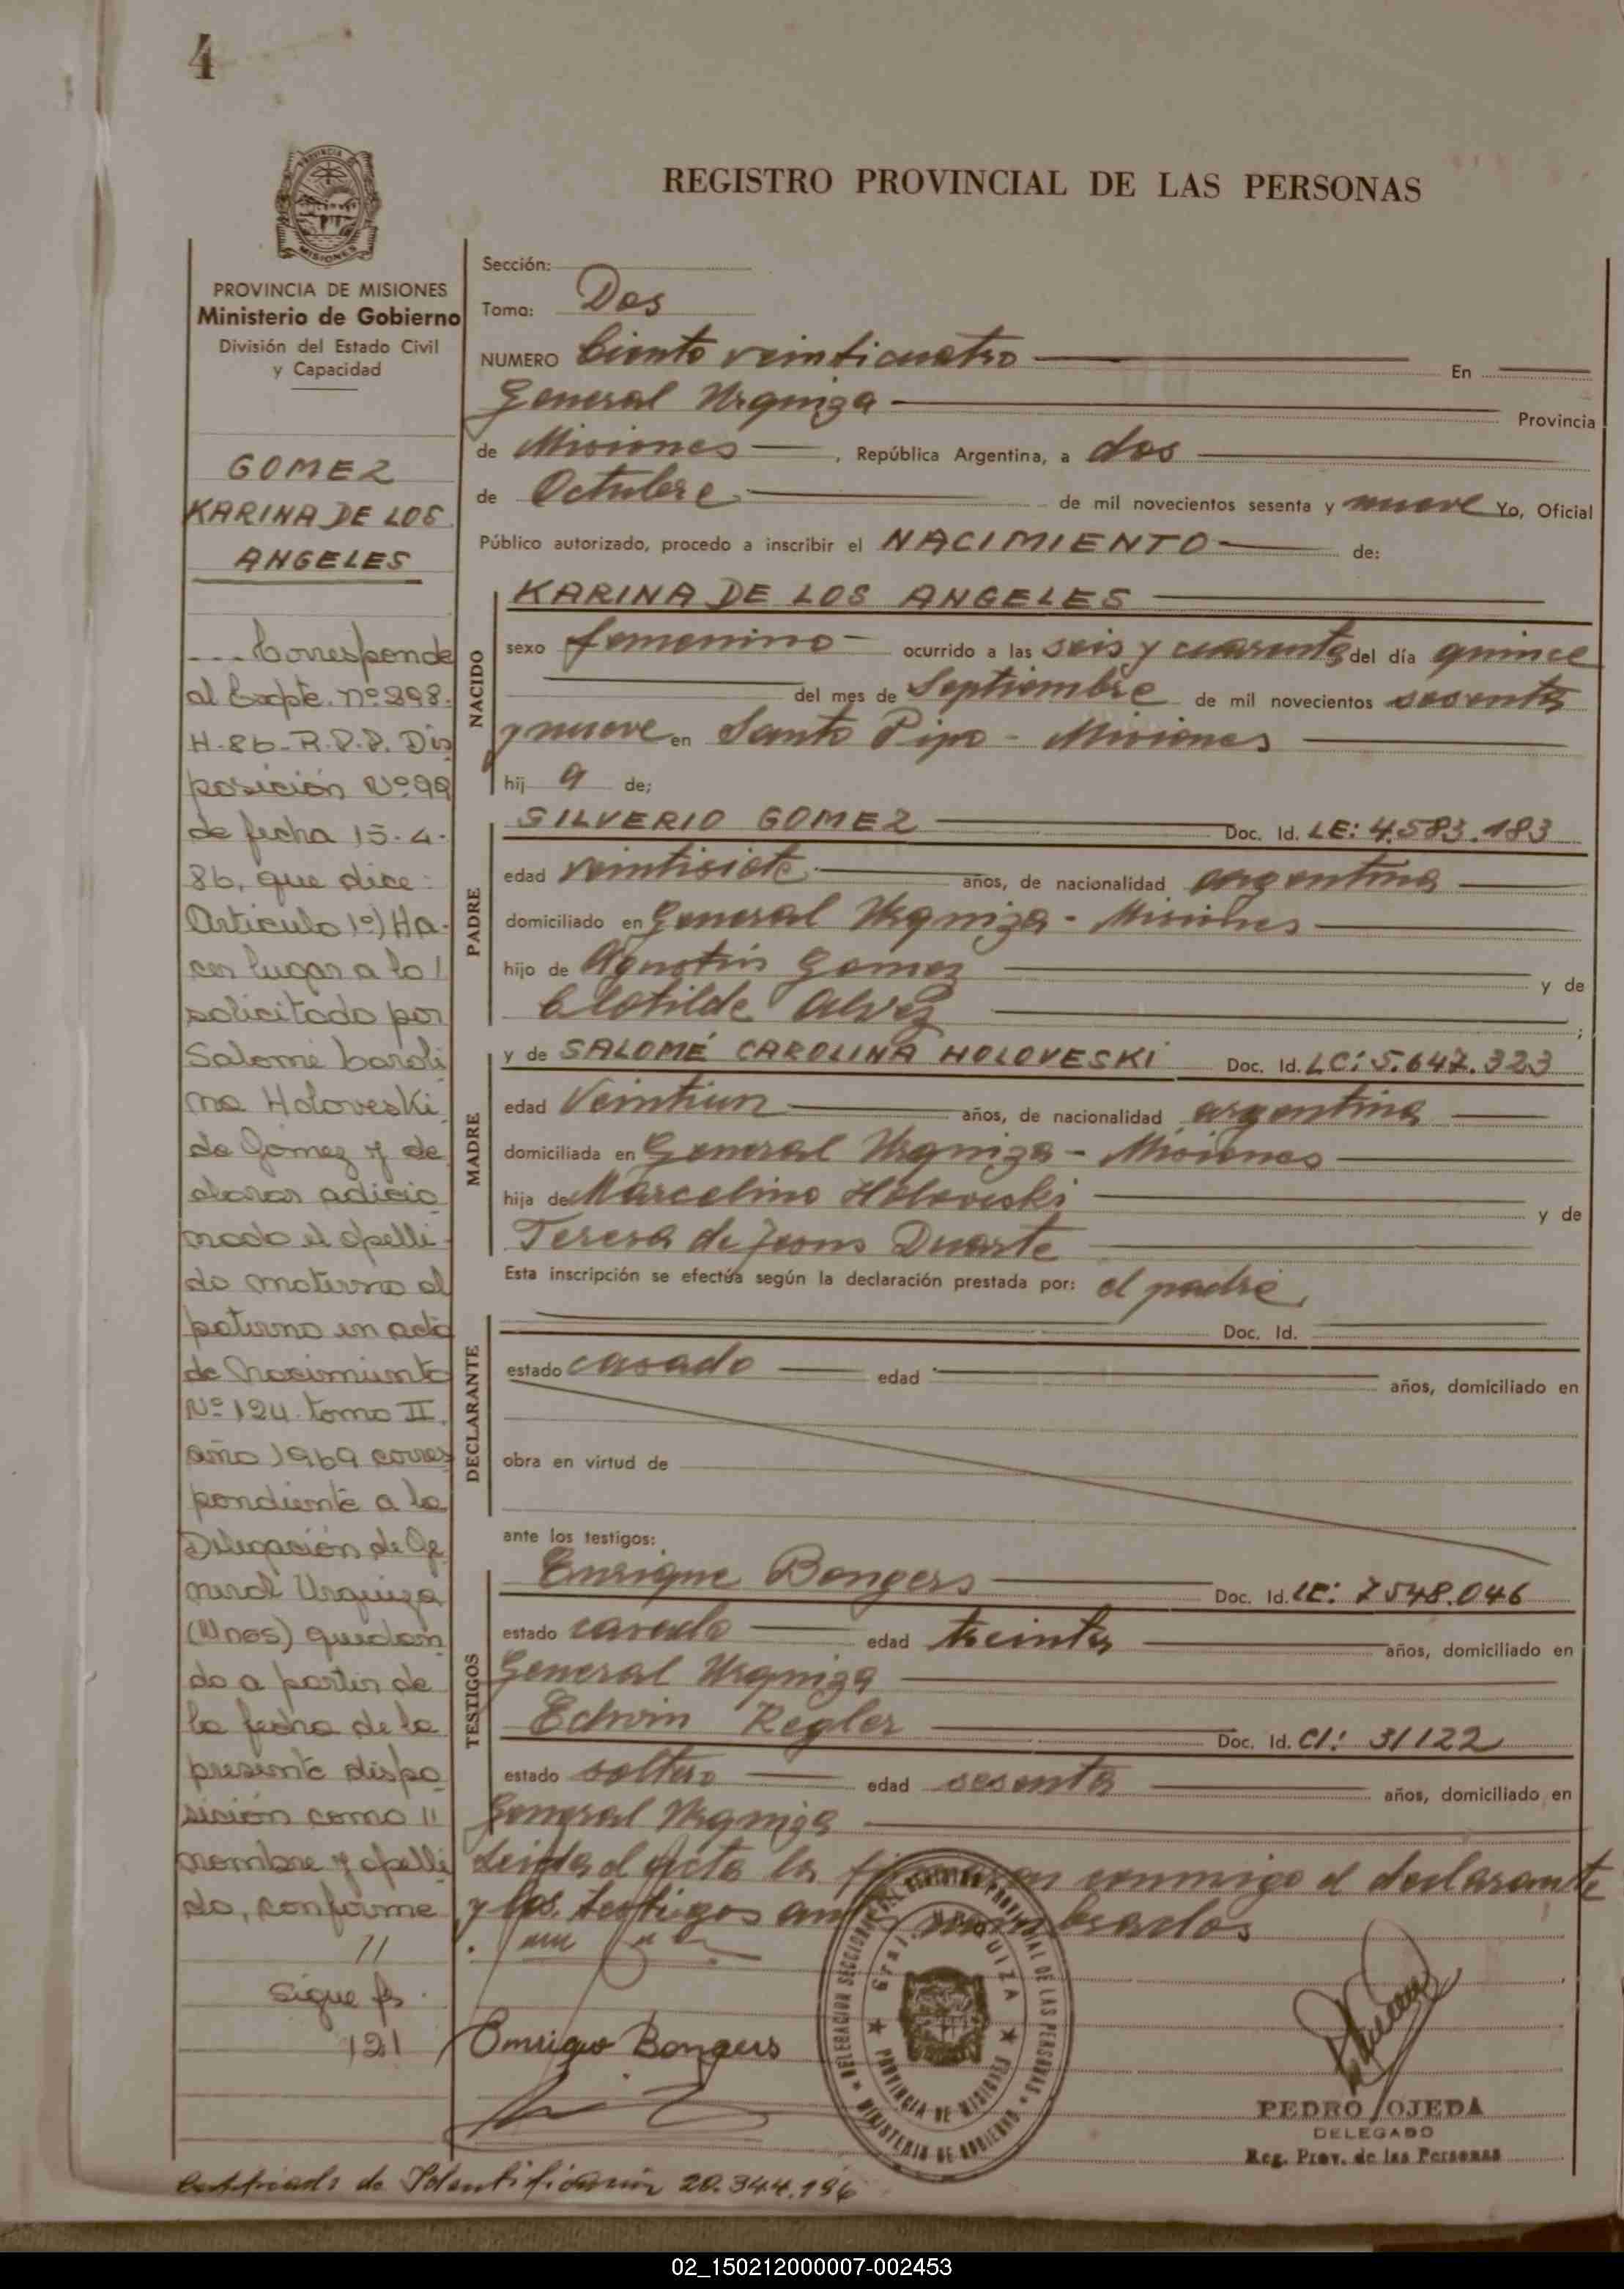 4
REGISTRO PROVINCIAL DE LAS PERSONAS
PROVINCIA DE MISIONES
Ministerio de Gobierno
División del Estado Civil
y Capacidad
GOMEZ
KARINA DE LOS
ANGELES
... Corresponde
al Expte. nº 298.
H-86-R.P.P. Dis
posición Nº 99
de fecha 15-4-
86, que dice:
Articulo 1º) Ha-
cer lugar a lo /
solicitado por
Salomé Caroli
na Holoveski
de Gómez y de
clarar adicio
nado el apelli-
do materno al
paterno en acta
de Nacimiento
Nº 124 tomo II
año 1969 corres
pondiente a la
Delegación de Ge
neral Urquiza
(Mnes) quedan
do a partir de
la fecha de la
presente dispo
sición como //
nombre y apelli
do, conforme
//
Sigue fs.
121
Sección:
Tomo: Dos
NUMERO Ciento veinticuatro En
General Urquiza Provincia
de Misiones, República Argentina, a dos
de Octubre de mil novecientos sesenta y nueve Yo, Oficial
Público autorizado, procedo a inscribir el NACIMIENTO de:
NACIDO
KARINA DE LOS ANGELES
sexo femenino ocurrido a las seis y cuarenta del día quince
del mes de Septiembre de mil novecientos sesenta
y nueve en Santo Pipo - Misiones
hij a de;
PADRE
SILVERIO GOMEZ Doc. Id. LE: 4.583.183
edad veintisiete años, de nacionalidad argentina
domiciliado en General Urquiza - Misiones
hijo de Agustin Gomez y de
Clotilde Alvez ;
MADRE
y de SALOMÉ CAROLINA HOLOVESKI Doc. Id. LC: 5.647.323
edad Veintiun años, de nacionalidad argentina
domiciliada en General Urquiza - Misiones
hija de Marcelino Holoveski y de
Teresa de Jesus Duarte
Esta inscripción se efectúa según la declaración prestada por: el padre,
DECLARANTE
Doc. Id.
estado casado edad años, domiciliado en
obra en virtud de
ante los testigos:
TESTIGOS
Enrique Bongers Doc. Id. LE: 7548.046
estado casado edad treinta años, domiciliado en
General Urquiza
Edwin Regler Doc. Id. CI: 31122
estado soltero edad sesenta años, domiciliado en
General Urquiza
Leida el acta la firmaron conmigo el declarante
y los testigos antes nombrados
Enrique Bongers
DELEGACION SECCIONAL DEL REGISTRO PROVINCIAL DE LAS PERSONAS
MINISTERIO DE GOBIERNO
GRAL. URQUIZA
PROVINCIA DE MISIONES
PEDRO OJEDA
DELEGADO
Reg. Prov. de las Personas
Certificado de Identificación 20.344.196
02_150212000007-002453